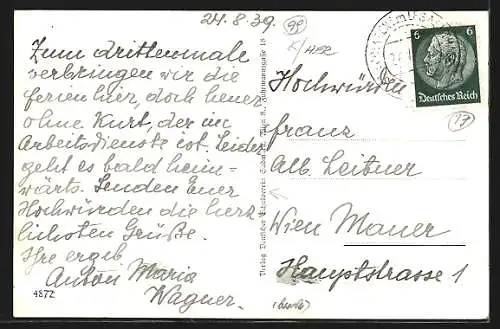 24.8.39.
Zum drittenmale
verbringen wir die
Ferien hier, doch heuer
ohne Kurt, der im
Arbeitsdienste ist. Leider
geht es bald heim=
wärts. Senden Euer
Hochwürden die herz
lichsten Grüße.
Ihre ergeb
Anton Maria
Wagner.
4872
Hochwürden
Franz
Alb. Leitner
Wien Mauer
Hauptstrasse 1
6 6
Deutsches Reich
17